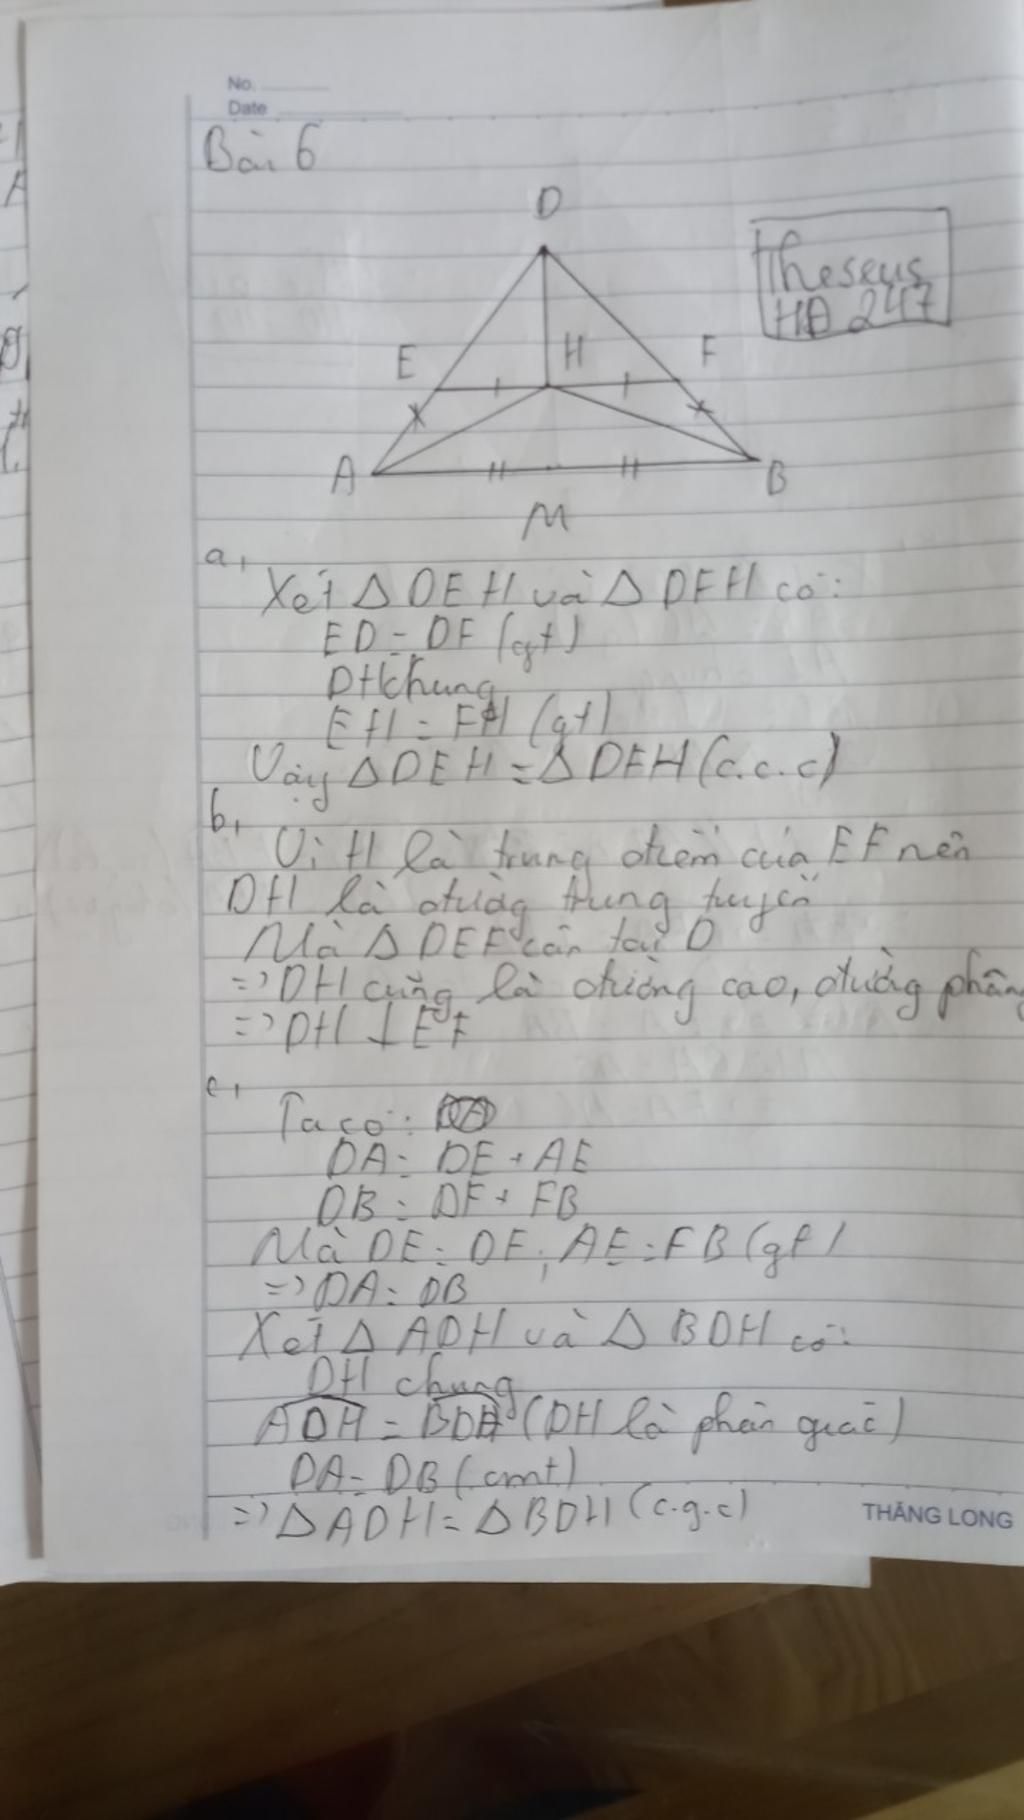 No.
Date
Bài 6
D
Theseus
HĐ 247
E
H
F
A
B
M
a,
Xét Δ DEH và Δ DFH có:
ED = DF (gt)
DH chung
EH = FH (gt)
Vậy Δ DEH = Δ DFH (c.c.c)
b,
Vì H là trung điểm của EF nên
DH là đường trung tuyến
Mà Δ DEF cân tại D
=> DH cũng là đường cao, đường phân
=> DH ⊥ EF
c,
Ta có:
DA = DE + AE
DB = DF + FB
Mà DE = DF, AE = FB (gt)
=> DA = DB
Xét Δ ADH và Δ BDH có:
DH chung
ADH = BDH (DH là phân giác)
DA = DB (cmt)
=> Δ ADH = Δ BDH (c.g.c)
THĂNG LONG